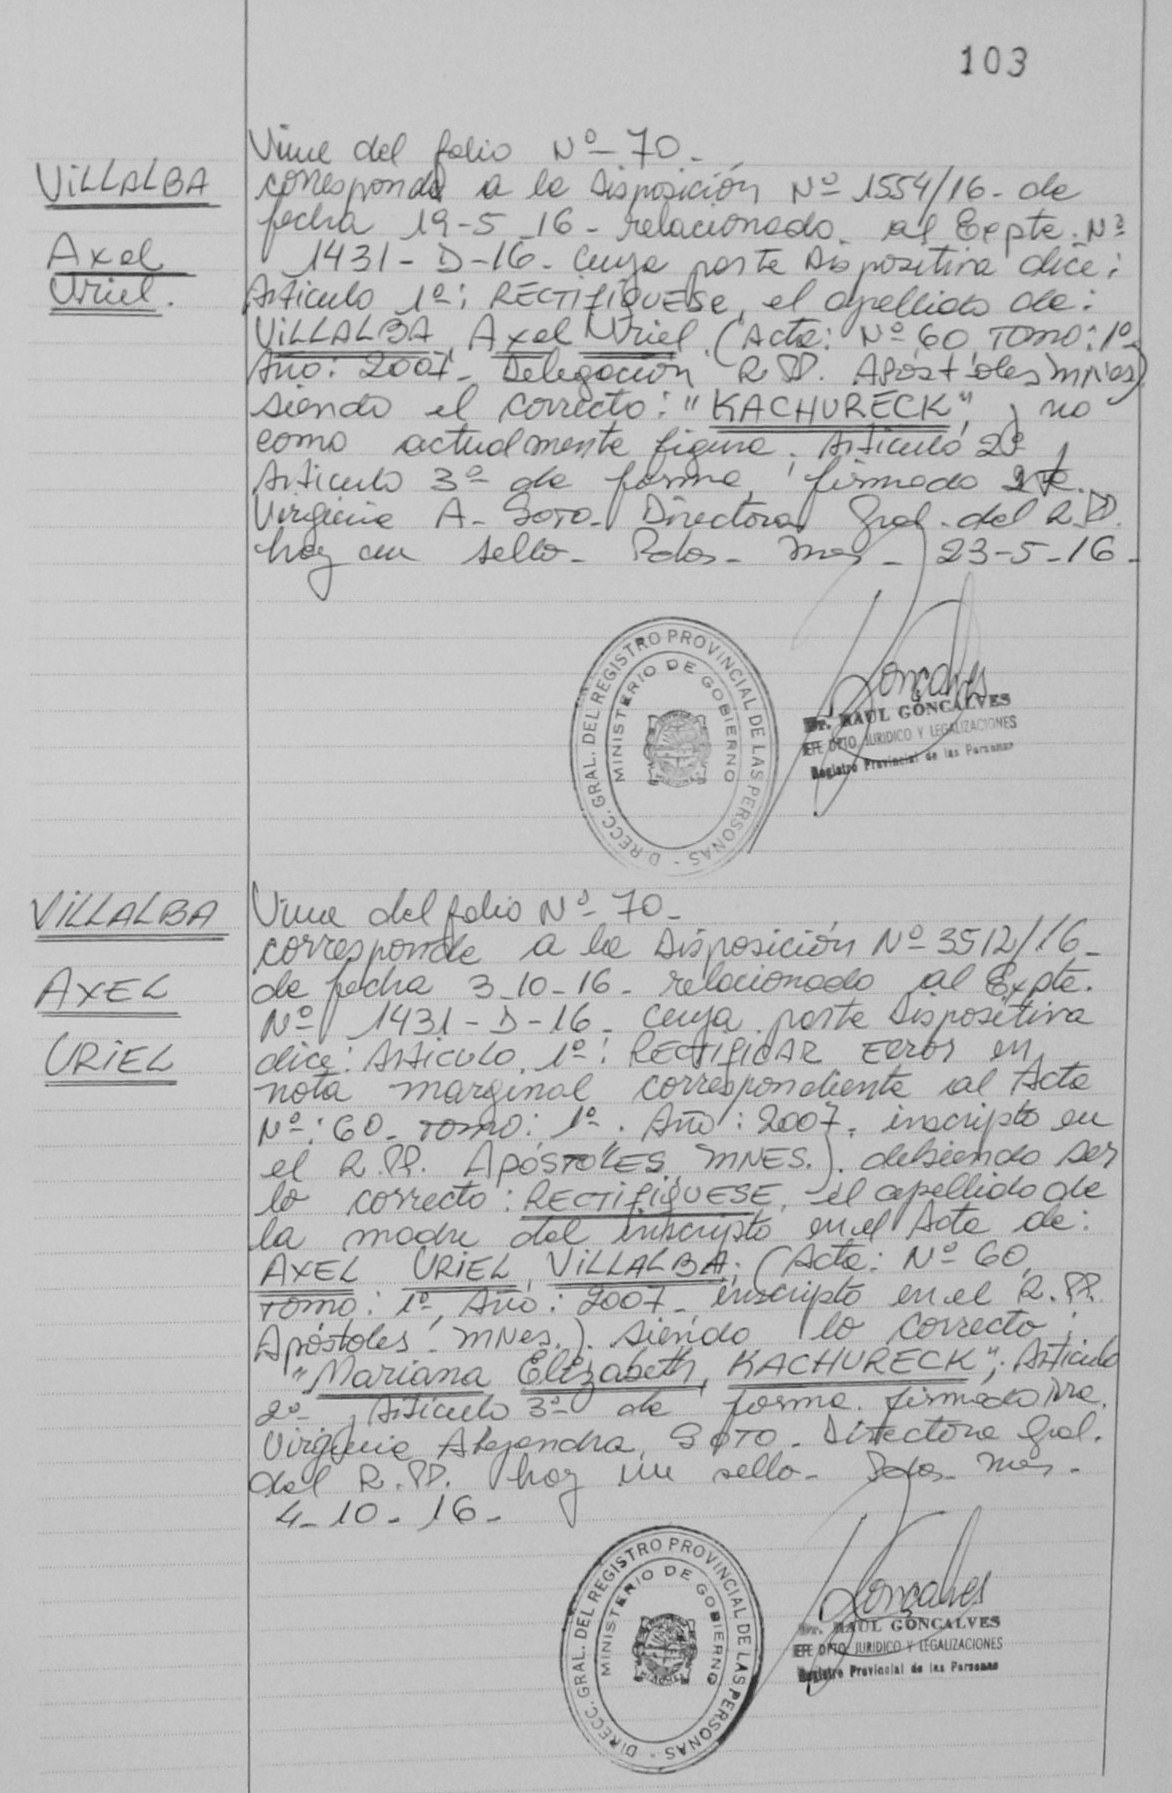 103
Viene del folio Nº 70-
VILLALBA
Axel
Uriel.
corresponde a la Disposición Nº 1554/16- de
fecha 19-5-16- relacionado al Expte. Nº
1431-D-16- Cuya parte Dispositiva dice:
Articulo 1º: RECTIFIQUESE, el apellido de:
VILLALBA, Axel Uriel. (Acta: Nº 60, TOMO: 1º-
Año: 2007- Delegación R.PP. Apóstoles Mnes)
siendo el correcto: "KACHURECK", y no
como actualmente figura. Articulo 2º y
Articulo 3º de forma, firmado
Virginia A. SOTO- Directora Gral. del R.PP.
hay un sello- Pdas- Mnes- 23-5-16-
DIRECC. GRAL. DEL REGISTRO PROVINCIAL DE LAS PERSONAS
MINISTERIO DE GOBIERNO
Dr. RAUL GONCALVES
JEFE DPTO JURIDICO Y LEGALIZACIONES
Registro Provincial de las Personas
VILLALBA
AXEL
URIEL
Viene del folio Nº 70-
corresponde a la Disposición Nº 3512/16-
de fecha 3-10-16- relacionado al Expte.
Nº 1431-D-16- Cuya parte Dispositiva
dice: Articulo 1º: RECTIFICAR Error en
nota marginal correspondiente al Acta
Nº: 60- TOMO: 1º. Año: 2007, inscripto en
el R.PP. APÓSTOLES, MNES.). debiendo ser
lo correcto: RECTIFIQUESE, el apellido de
la madre del inscripto en el Acta de:
AXEL URIEL, VILLALBA. (Acta: Nº 60,
TOMO: 1º, Año: 2007- inscripto en el R.PP.
Apóstoles- Mnes.). siendo lo correcto:
"Mariana Elizabeth, KACHURECK"; Articulo
2º y Articulo 3º de forma. firmado Dra.
Virginia Alejandra, SOTO- Directora Gral.
del R.PP. hay un sello- Pdas- Mnes-
4-10-16-
DIRECC. GRAL. DEL REGISTRO PROVINCIAL DE LAS PERSONAS
MINISTERIO DE GOBIERNO
Dr. RAUL GONCALVES
JEFE DPTO JURIDICO Y LEGALIZACIONES
Registro Provincial de las Personas